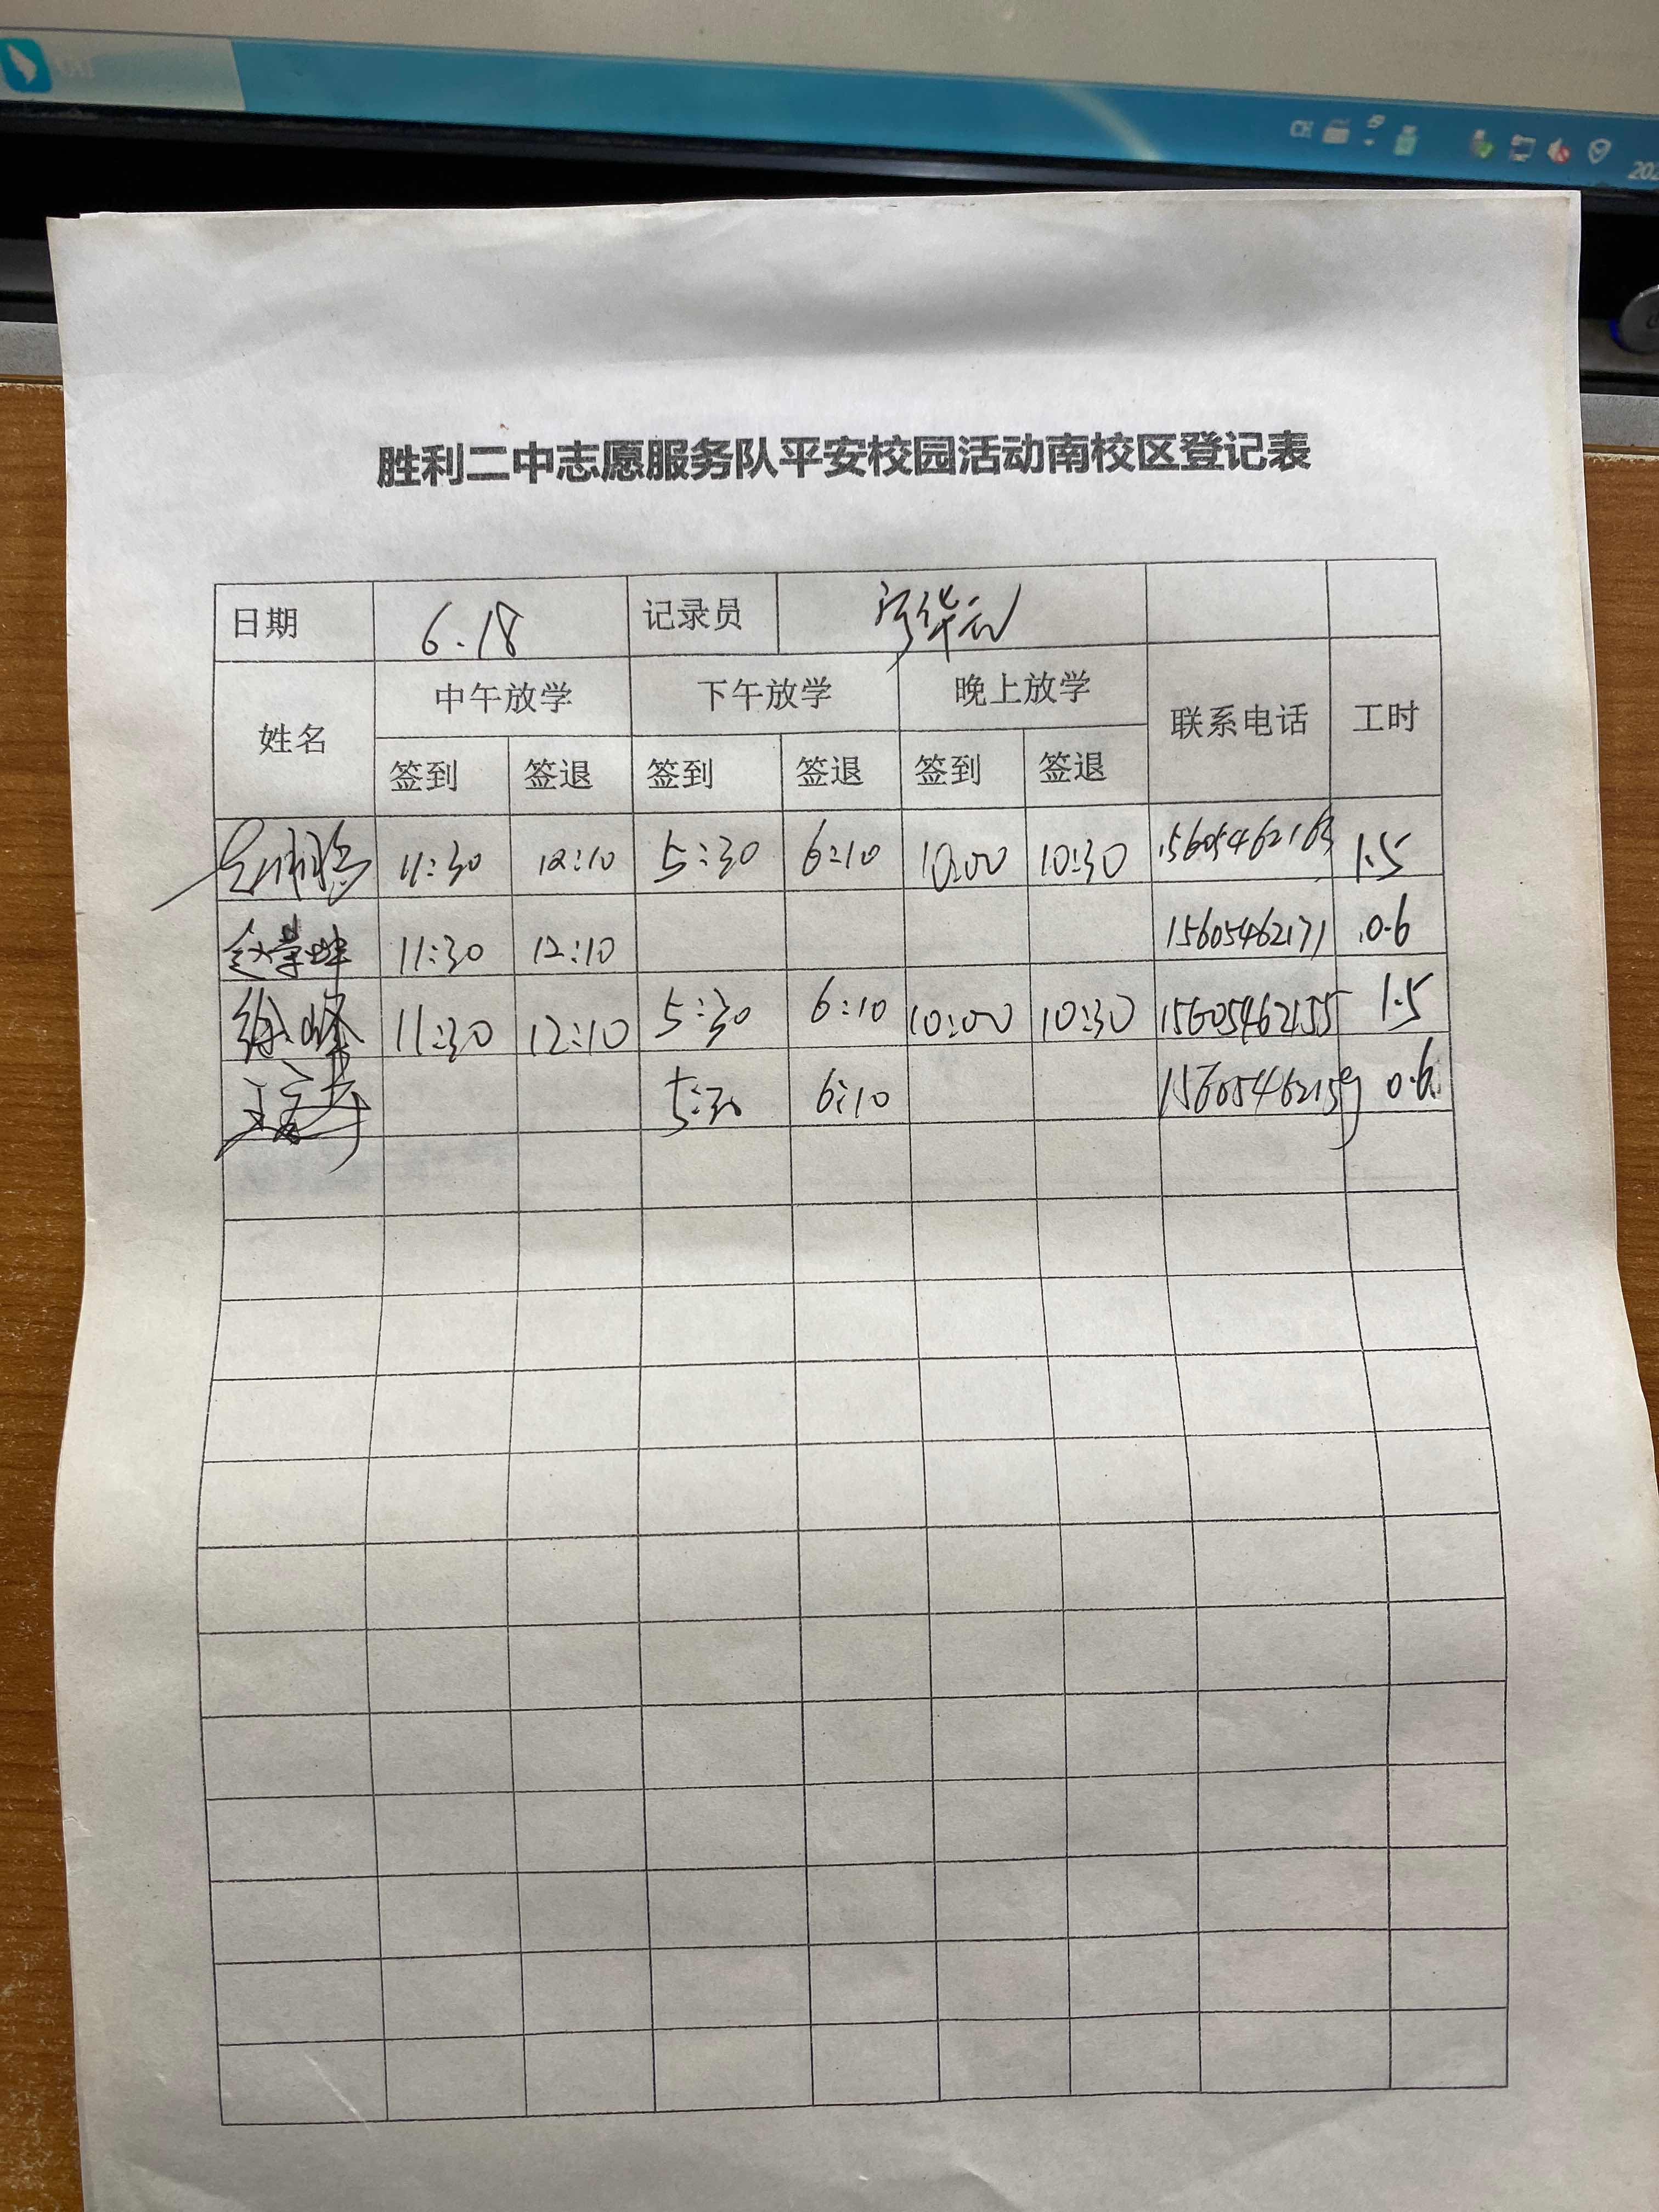 CH
202
胜利二中志愿服务队平安校园活动南校区登记表
日期 6.18 记录员
姓名 中午放学 下午放学 晚上放学 联系电话 工时
签到 签退 签到 签退 签到 签退
11:30 12:10 5:30 6:10 10:00 10:30 15605462163 1.5
11:30 12:10 15605462171 0.6
徐峰 11:30 12:10 5:30 6:10 10:00 10:30 15605462155 1.5
5:30 6:10 15605462159 0.6